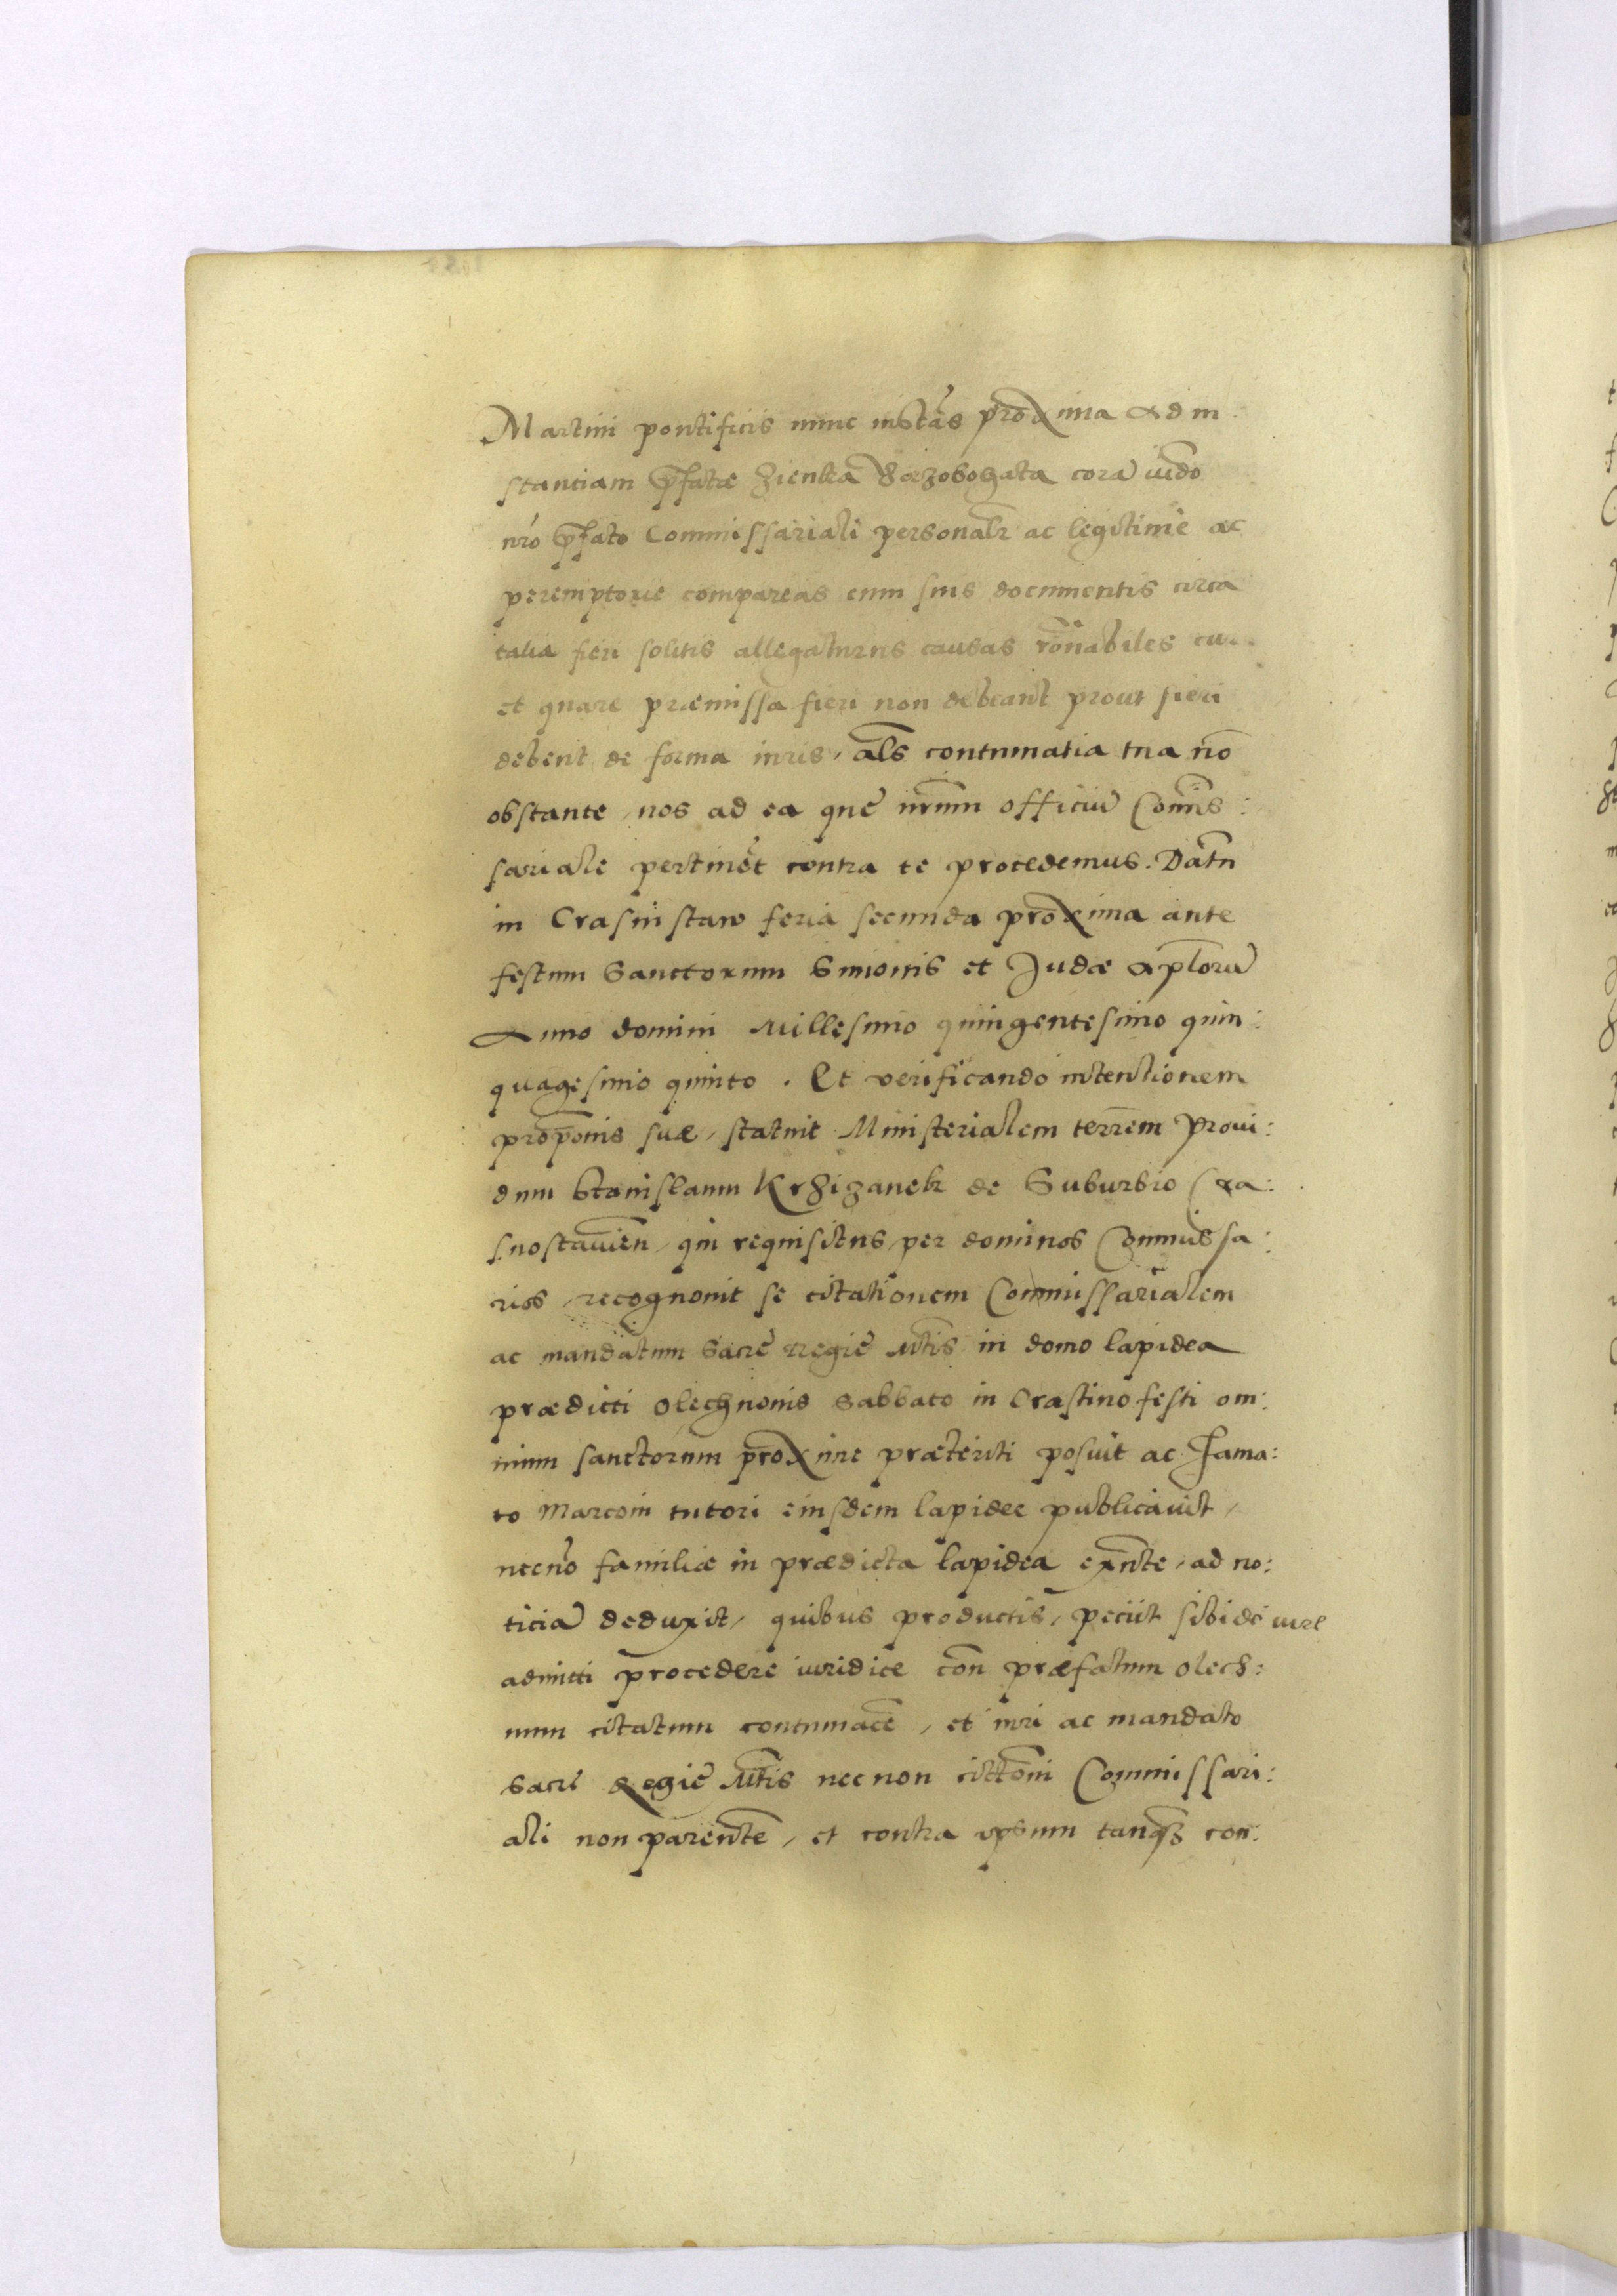 Martini pontificis nunc instãs proxima ad in
stantiam p̃fatæ Zienka Skrzobogata corã iudo
nr̃o p̃fato Commissariali personalr̃ ac legitime ac
peremptorie compareas cum suis documentis circa
talia fieri solitis allegaturus causas rõnabiles cur
et quare præmissa fieri non debeant prout fieri
debent de forma iuris, als̃ contumatia tua nõ
obstante, nos ad ea que nrũm officiũ Com̃is:
sariale pertinẽt contra te procedemus. Datũ
in Crasnistaw feria secunda proxima ante
festum Sanctorum Simonis et Judæ apl̃orũ
Anno domini Millesimo quingentesimo quin:
quagesimo quinto. Et verificando intentionem
prop̃onis suæ, statuit Ministerialem terr̃em Proui:
dum Stanislaum Krzizanek de Suburbio Cra:
snostaw̃ien, qui requisitus, per dominos Commissa:
rios, recognouit se citationem Commissarialem
ac mandatum Sacre Regie Mt̃is in domo lapidea
prædicti Olechnonis Sabbato in Crastino festi om:
nium sanctorum proxime præteriti posuit ac Fama:
to Marcoin tutori eiusdem lapidee publicauit,
necnõ familiæ in prædicta lapidea exñte, ad no:
ticiã deduxit, quibus productis, peciit sibi de iure
admitti procedere iuridice coñ præfatum Olech:
num citatum contumacẽ, et iuri ac mandato
Sacre Regie Mt̃is nec non citt̃oni Commissari:
ali non parentẽ, et contra ipsum tanq̃ꝫ con: